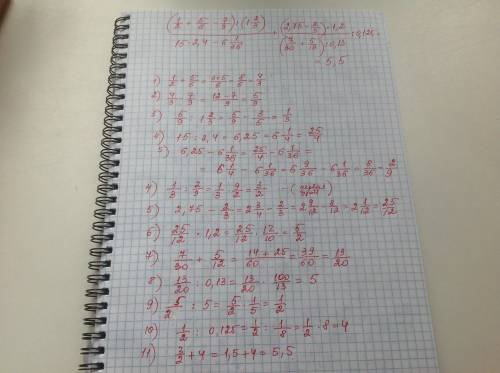 (1/2 + 5/6 - 7/9) : (1 2/3) / (15 : 2,4 - 6 1/36) + (2,75 - 2/3) · 1,2 / ((7/30 + 5/12) : 0,13) : 0,125 =
= 5,5
1) 1/2 + 5/6 = 3+5/6 = 8/6 = 4/3
2) 4/3 - 7/9 = 12-7/9 = 5/9
3) 5/9 : 1 2/3 = 5/9 · 3/5 = 1/3
4) 15 : 2,4 = 6,25 = 6 1/4 = 25/4
5) 6,25 - 6 1/36 = 25/4 - 6 1/36 =
= 6 1/4 - 6 1/36 = 6 9/36 - 6 1/36 = 8/36 = 2/9
4) 1/3 : 2/9 = 1/3 · 9/2 = 3/2 -
5) 2,75 - 2/3 = 2 3/4 - 2/3 = 2 9/12 - 8/12 = 2 1/12 = 25/12
6) 25/12 · 1,2 = 25/12 · 12/10 = 5/2
7) 7/30 + 5/12 = 14+25/60 = 39/60 = 13/20
8) 13/20 : 0,13 = 13/20 · 100/13 = 5
9) 5/2 : 5 = 5/2 · 1/5 = 1/2
10) 1/2 : 0,125 = 1/2 : 1/8 = 1/2 · 8 = 4
11) 3/2 + 4 = 1,5 + 4 = 5,5